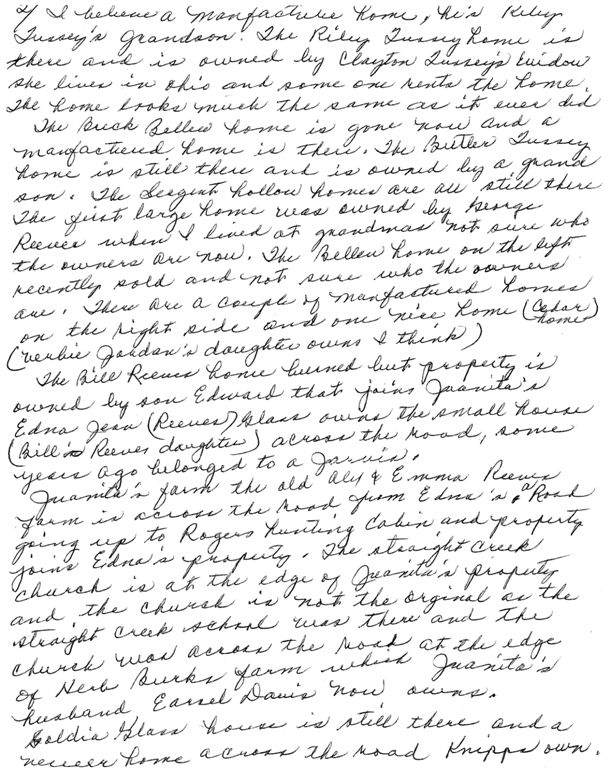 4/ I believe a manfacture home, he's Riley
Tussey's grandson. The Riley Tussey home is
there and is owned by Clayton Tussey's Widow
she lives in ohio and some one rents the home.
The home looks much the same as it ever did
The Buck Bellew home is gone now and a
manfactured home is there. The Butler Tussey
home is still there and is owned by a grand
son. The Seegent hollow homes are all still there
The first large home was owned by George
Reeves when I lived at grandmas not sure who
the owners are now. The Bellew home on the left
recently sold and not sure who the owners
are. There are a couple of manfactured homes
on the right side and one nice home (Cedar home)
(Verbie Jordan's daughter owns I think)
The Bill Reeves home burned but property is
owned by son Edward that joins Juanita's
Edna Jean (Reeves) Glass owns the small house
(Bill's Reeves daughter) across the road, some
years ago belonged to a Jarvis.
Juanita's farm the old Aly & Emma Reeves
farm is across the road from Edna's, a Road
going up to Rogers hunting Cabin and property
joins Edna's property. The straight Creek
church is at the edge of Juanita's property
and the church is not the orginal as the
straight Creek school was there and the
church was across the road at the edge
of Herb Burks farm which Juanita's
husband Earsel Davis now owns.
Goldia Glass house is still there and a
newer home across the road Knipps own.